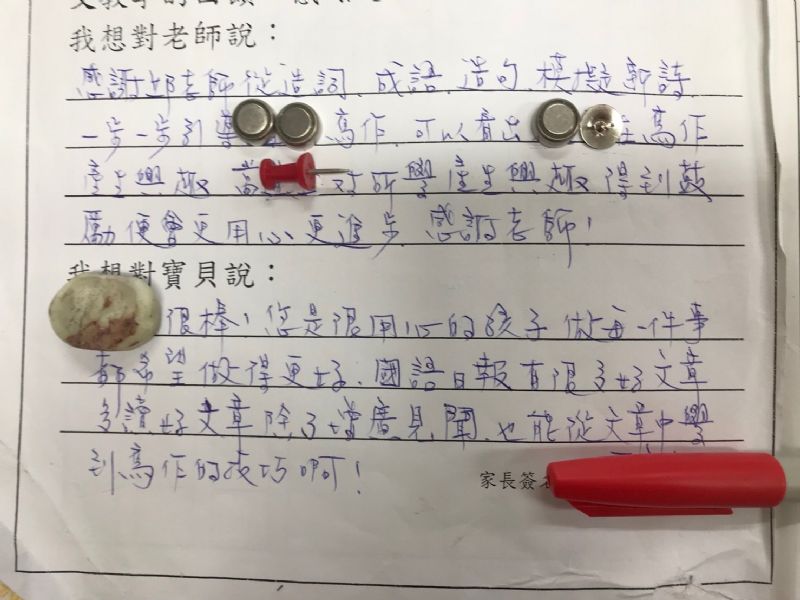 我想對老師說：
感謝邱老師從造詞、成語、造句、模擬新詩
一步一步引導寫作，可以看出寫作
產生興趣 當 對所學產生興趣 得到鼓
勵便會更用心更進步 感謝老師！
我想對寶貝說：
很棒！您是很用心的孩子 做每一件事
都希望做得更好，國語日報有很多好文章
多讀好文章除了增廣見聞，也能從文章中學
到寫作的技巧啊！
家長簽名